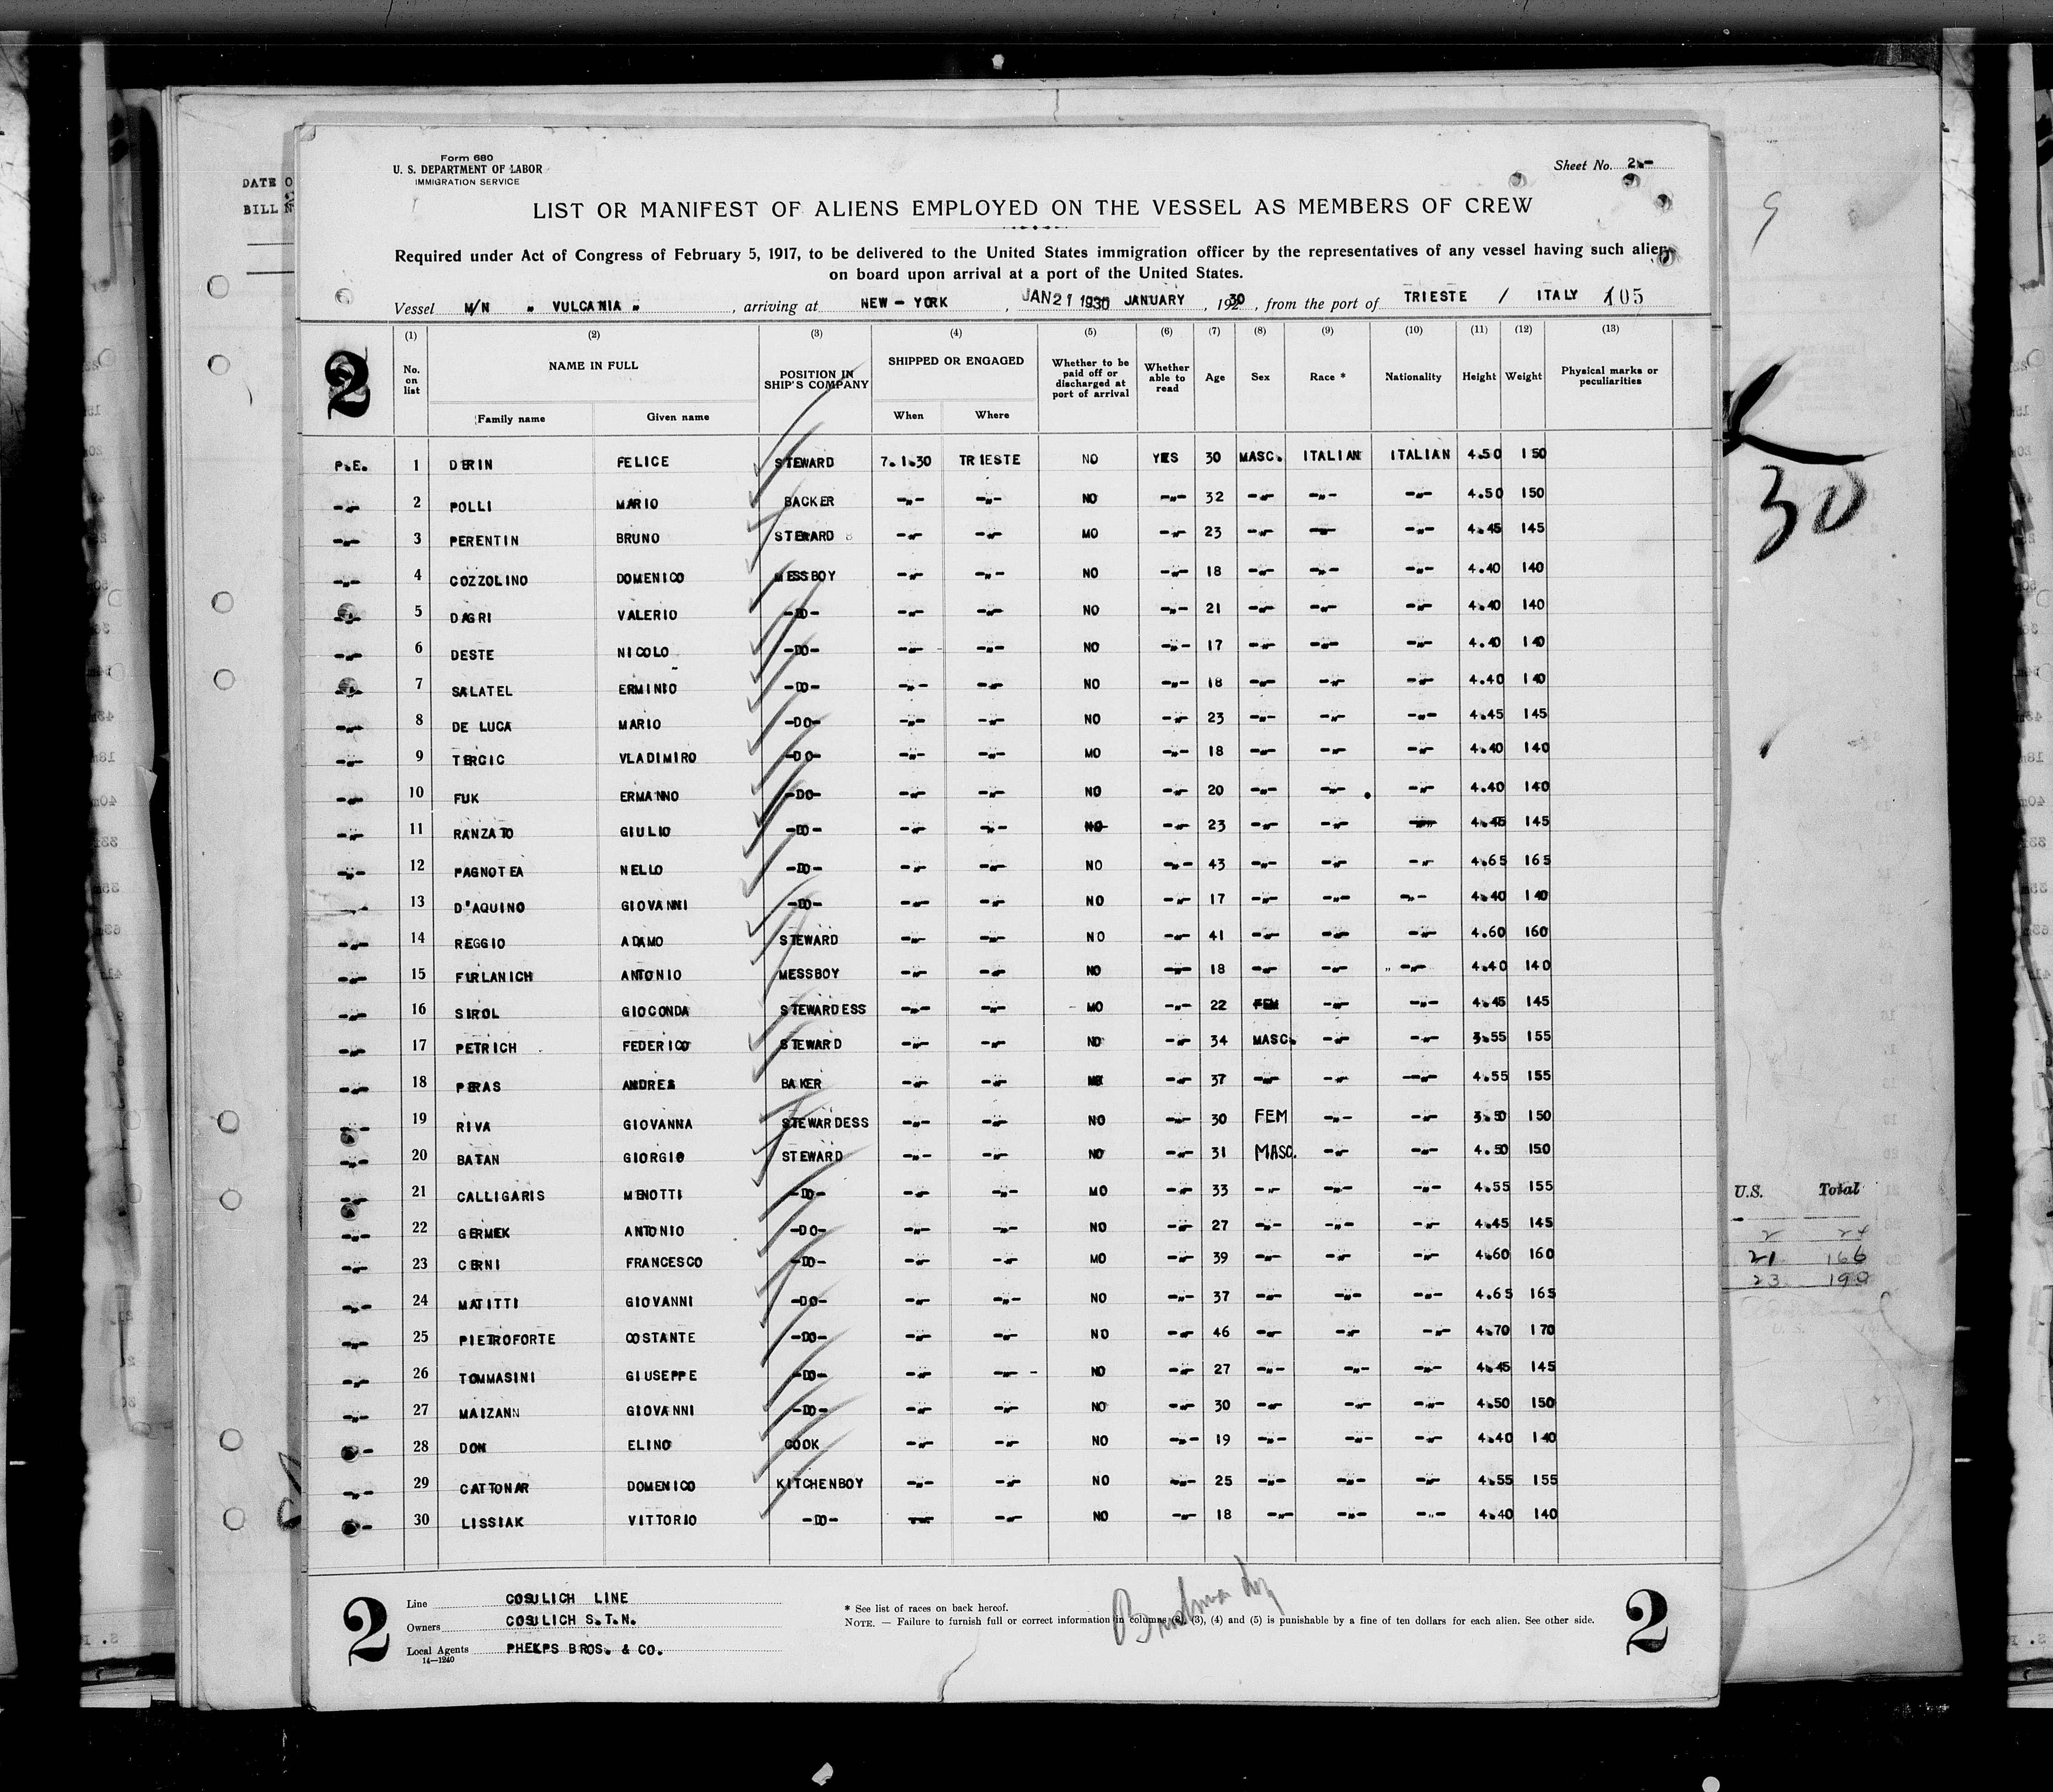 Form 680
U. S. DEPARTMENT OF LABOR
IMMIGRATION SERVICE
Sheet No. 2.-
DATE O
BILL N
LIST OR MANIFEST OF ALIENS EMPLOYED ON THE VESSEL AS MEMBERS OF CREW
Required under Act of Congress of February 5, 1917, to be delivered to the United States immigration officer by the representatives of any vessel having such aliens
on board upon arrival at a port of the United States.
Vessel M/N " VULCANIA " , arriving at NEW - YORK , JAN 21 1930 JANUARY , 1930 , from the port of TRIESTE / ITALY 105
2
(1) (2) (3) (4) (5) (6) (7) (8) (9) (10) (11) (12) (13)
No. on list NAME IN FULL Family name Given name POSITION IN SHIP'S COMPANY SHIPPED OR ENGAGED When Where Whether to be paid off or discharged at port of arrival Whether able to read Age Sex Race * Nationality Height Weight Physical marks or peculiarities
P.E. 1 DERIN FELICE STEWARD 7.1.30 TRIESTE NO YES 30 MASC. ITALIAN ITALIAN 4.50 150
-"- 2 POLLI MARIO BACKER -"- -"- NO -"- 32 -"- -"- -"- 4.50 150
-"- 3 PERENTIN BRUNO STEWARD -"- -"- MO -"- 23 -"- -"- -"- 4.45 145
-"- 4 COZZOLINO DOMENICO MESSBOY -"- -"- NO -"- 18 -"- -"- -"- 4.40 140
-"- 5 DAGRI VALERIO -DO- -"- -"- NO -"- 21 -"- -"- -"- 4.40 140
-"- 6 DESTE NICOLO -DO- -"- -"- NO -"- 17 -"- -"- -"- 4.40 140
-"- 7 SALATEL ERMINIO -DO- -"- -"- NO -"- 18 -"- -"- -"- 4.40 140
-"- 8 DE LUCA MARIO -DO- -"- -"- NO -"- 23 -"- -"- -"- 4.45 145
-"- 9 TERCIC VLADIMIRO -DO- -"- -"- MO -"- 18 -"- -"- -"- 4.40 140
-"- 10 FUK ERMANNO -DO- -"- -"- NO -"- 20 -"- -"- -"- 4.40 140
-"- 11 RANZATO GIULIO -DO- -"- -"- NO -"- 23 -"- -"- -"- 4.45 145
-"- 12 PAGNOTEA NELLO -DO- -"- -"- NO -"- 43 -"- -"- -"- 4.65 165
-"- 13 D'AQUINO GIOVANNI -DO- -"- -"- NO -"- 17 -"- -"- -"- 4.40 140
-"- 14 REGGIO ADAMO STEWARD -"- -"- NO -"- 41 -"- -"- -"- 4.60 160
-"- 15 FURLANICH ANTONIO MESSBOY -"- -"- NO -"- 18 -"- -"- -"- 4.40 140
-"- 16 SIROL GIOCONDA STEWARDESS -"- -"- MO -"- 22 FEM -"- -"- 4.45 145
-"- 17 PETRICH FEDERICO STEWARD -"- -"- NO -"- 34 MASC. -"- -"- 3.55 155
-"- 18 PERAS ANDREA BAKER -"- -"- -"- 37 -"- -"- -"- 4.55 155
-"- 19 RIVA GIOVANNA STEWARDESS -"- -"- NO -"- 30 FEM -"- -"- 3.50 150
-"- 20 BATAN GIORGIO STEWARD -"- -"- NO -"- 31 MASC. -"- -"- 4.50 150
-"- 21 CALLIGARIS MENOTTI -DO- -"- -"- MO -"- 33 -"- -"- -"- 4.55 155
-"- 22 GERMEK ANTONIO -DO- -"- -"- NO -"- 27 -"- -"- -"- 4.45 145
-"- 23 CERNI FRANCESCO -DO- -"- -"- MO -"- 39 -"- -"- -"- 4.60 160
-"- 24 MATITTI GIOVANNI -DO- -"- -"- NO -"- 37 -"- -"- -"- 4.65 165
-"- 25 PIETROFORTE COSTANTE -DO- -"- -"- NO -"- 46 -"- -"- -"- 4.70 170
-"- 26 TOMMASINI GIUSEPPE -DO- -"- -"- NO -"- 27 -"- -"- -"- 4.45 145
-"- 27 MAIZANN GIOVANNI -DO- -"- -"- NO -"- 30 -"- -"- -"- 4.50 150
-"- 28 DON ELINO COOK -"- -"- NO -"- 19 -"- -"- -"- 4.40 140
-"- 29 CATTONAR DOMENICO KITCHENBOY -"- -"- NO -"- 25 -"- -"- -"- 4.55 155
-"- 30 LISSIAK VITTORIO -DO- -"- -"- NO -"- 18 -"- -"- -"- 4.40 140
2
Line COSULICH LINE
Owners COSULICH S.T.N.
Local Agents PHELPS BROS. & CO.
14—1240
* See list of races on back hereof.
NOTE. — Failure to furnish full or correct information in columns (2), (3), (4) and (5) is punishable by a fine of ten dollars for each alien. See other side.
2
9
30
U.S. Total
2 24
21 166
23 190